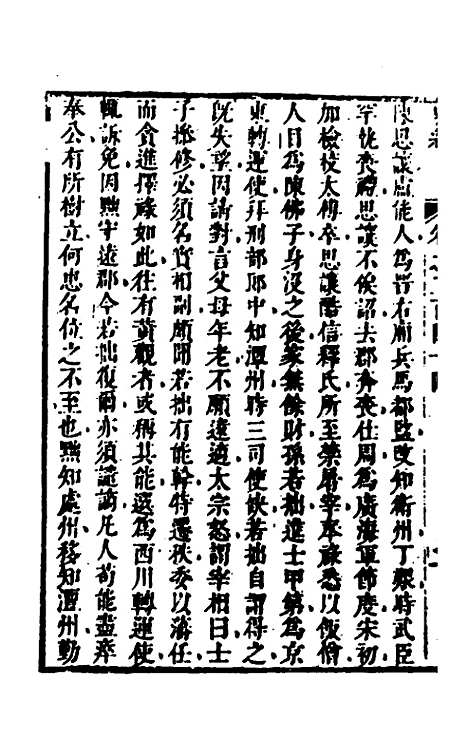 陳思讓盧龍人爲晉右廂兵馬都監改知衛州丁艱時武臣
罕執喪禮思讓不俟詔去郡奔喪仕周爲廣海軍節度宋初
加檢校太傅卒思讓酷信釋氏所至禁屠宰奉祿悉以飯僧
人目爲陳佛子身沒之後家無餘財孫若拙進士甲第爲京
東轉運使拜刑部郎中知潭州時三司使缺若拙自謂得之
既失望因請對言父母年老不願遠適太宗怒謂宰相曰士
子操修必須名實相副頗聞若拙有能幹特遷秩委以藩任
而貪進擇祿如此往有黃觀者或稱其能選爲西川轉運使
輒訴免因黜守遠郡今若拙復爾亦須譴謫凡人苟能盡瘁
奉公有所樹立何患名位之不至也黜知處州移知溫州勤